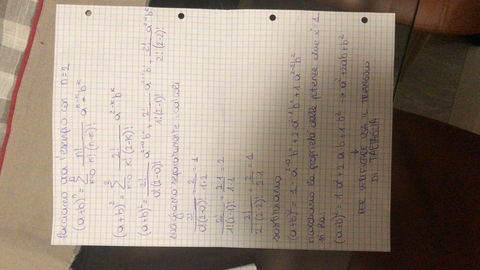 Facciamo un esempio con n=2
(a+b)² = Σ n! / k!(n-k)! a^n-k b^k
(a+b)² = Σ 2! / k!(2-k)! a^2-k b^k
(a+b)² = 2! / 0!(2-0)! a^2-0 b^0 + 2 / 1!(2-1)! a^2-1 b^1 + 2! / 2!(2-2)! a^2-2 b^2
svolgiamo separatamente i calcoli
2! / 0!(2-0)! = 2 / 1·2 = 1
2 / 1!(2-1)! = 2·1 / 1·1 = 2
2! / 2!(2-2)! = 2 / 2·1 = 1
sostituiamo
(a+b)² = 1·a^2-0 b^0 + 2·a^2-1 b^1 + 1 a^2-2 b^2
ricordiamo la proprietà delle potenze che x⁰ = 1
si ha:
(a+b)² = 1 a² + 2 a b + 1 b² → a² + 2ab + b²
per
usa il triangolo
di TARTAGLIA